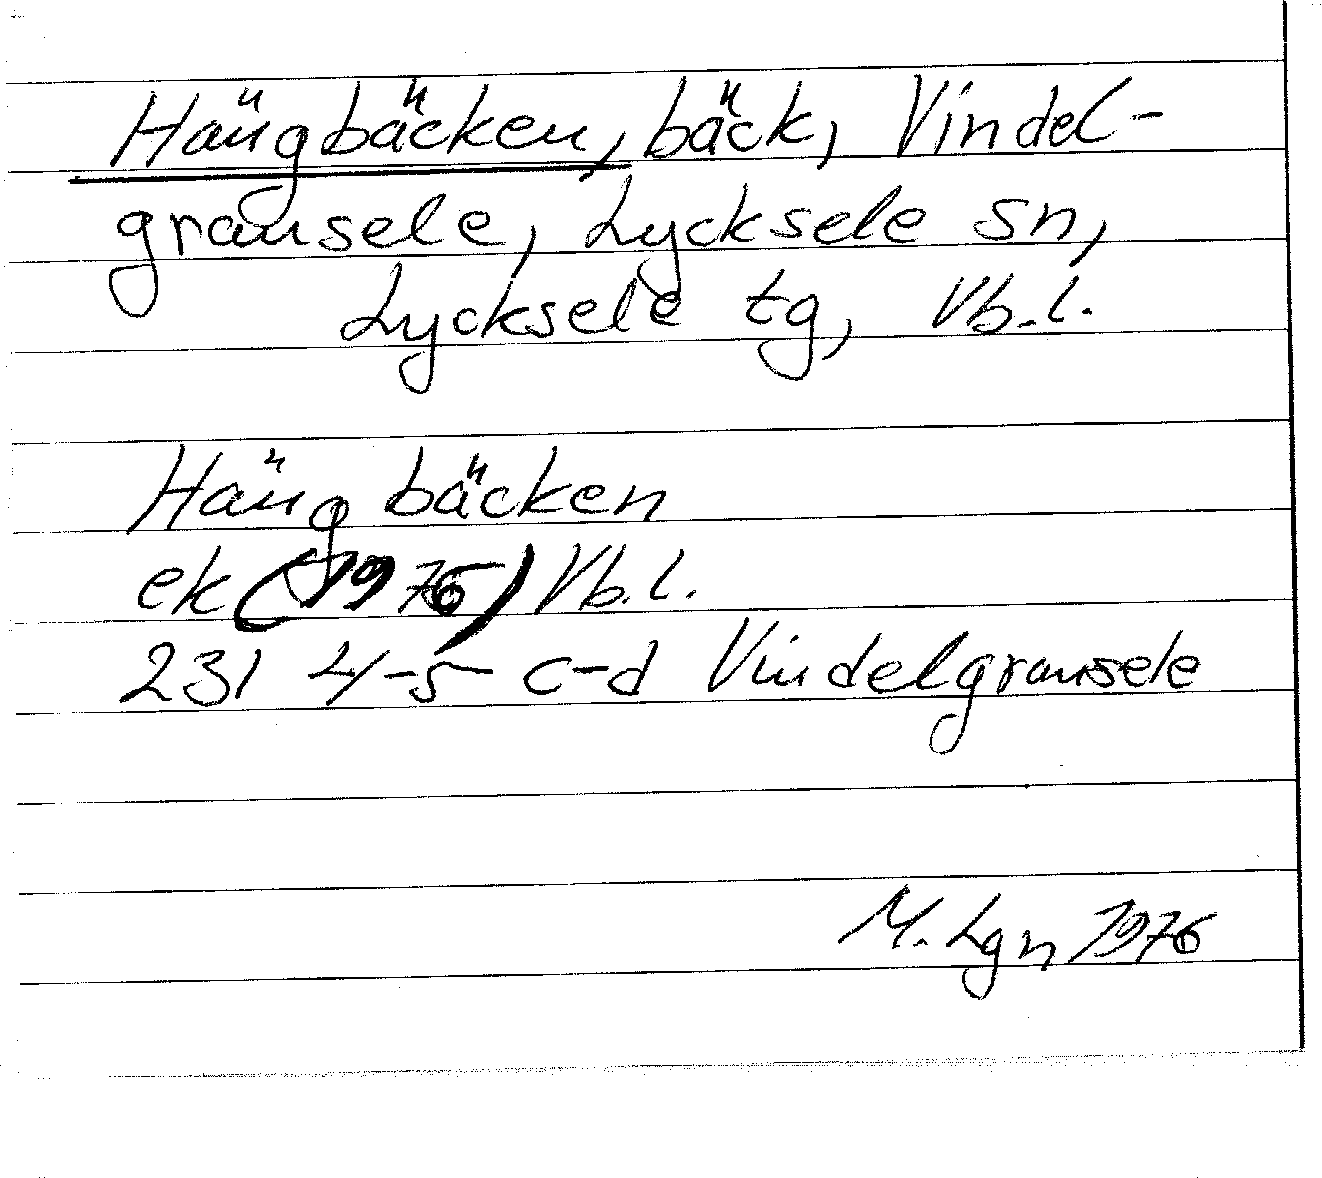 Hängbäcken, bäck, Vindel-
gransele, Lycksele sn,
Lycksele tg, Vb.l.
Hängbäcken
ek (1976) Vb.l.
231 4-5 c-d Vindelgransele
M. Lgn 1976